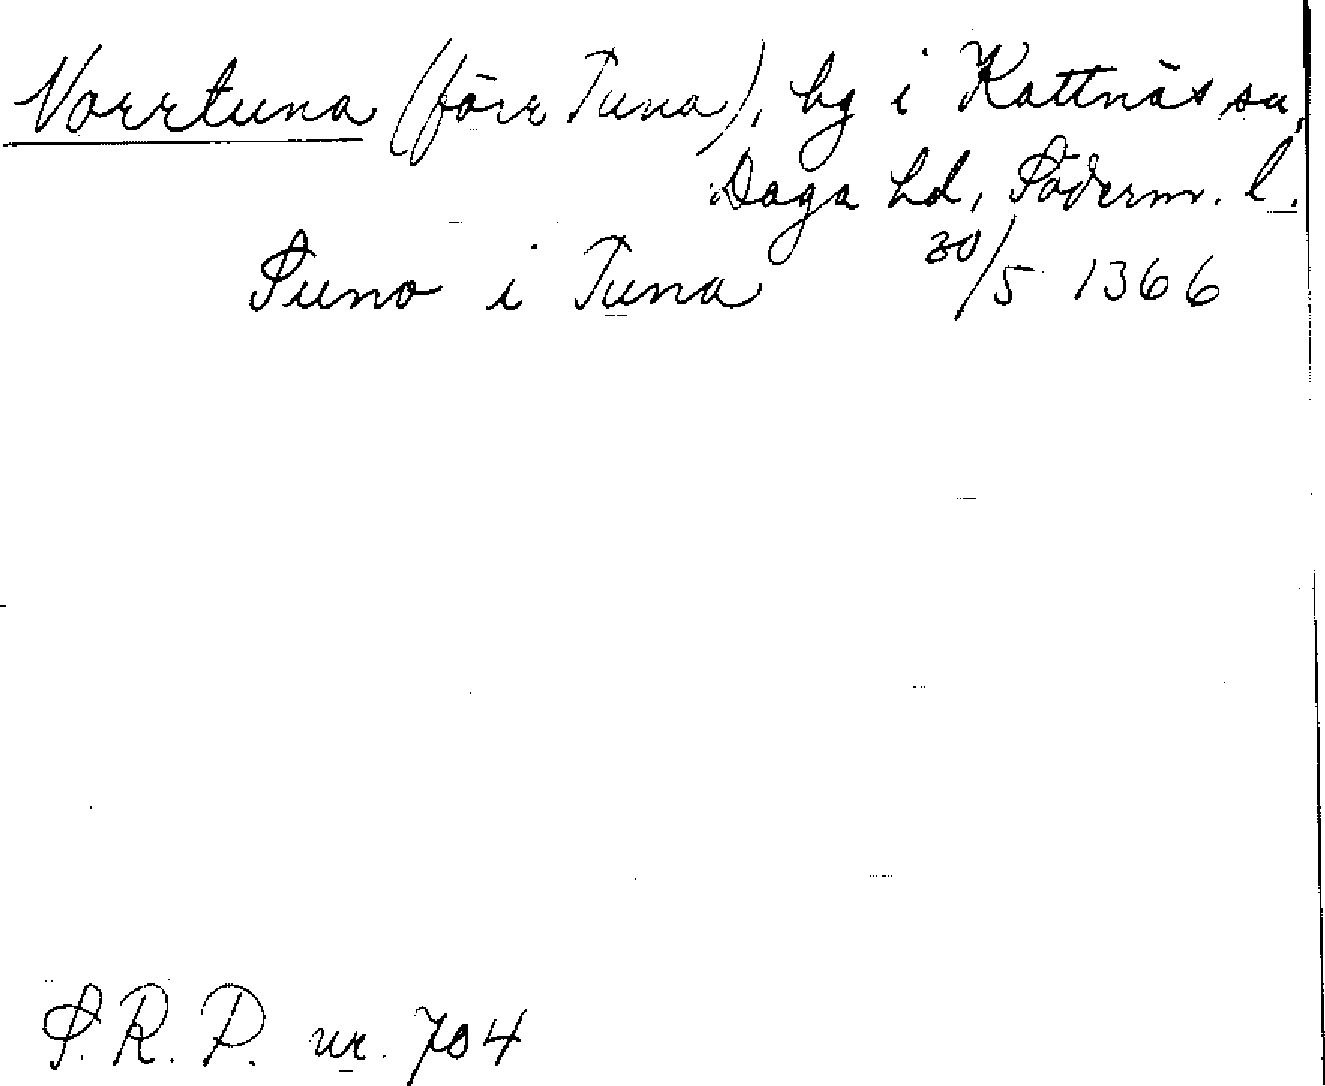 Norrtuna (förr Tuna), by i Kattnäs sn,
Daga hd, Söderm. l.
Suno i Tuna 30/5 1366
S.R.P. nr. 704